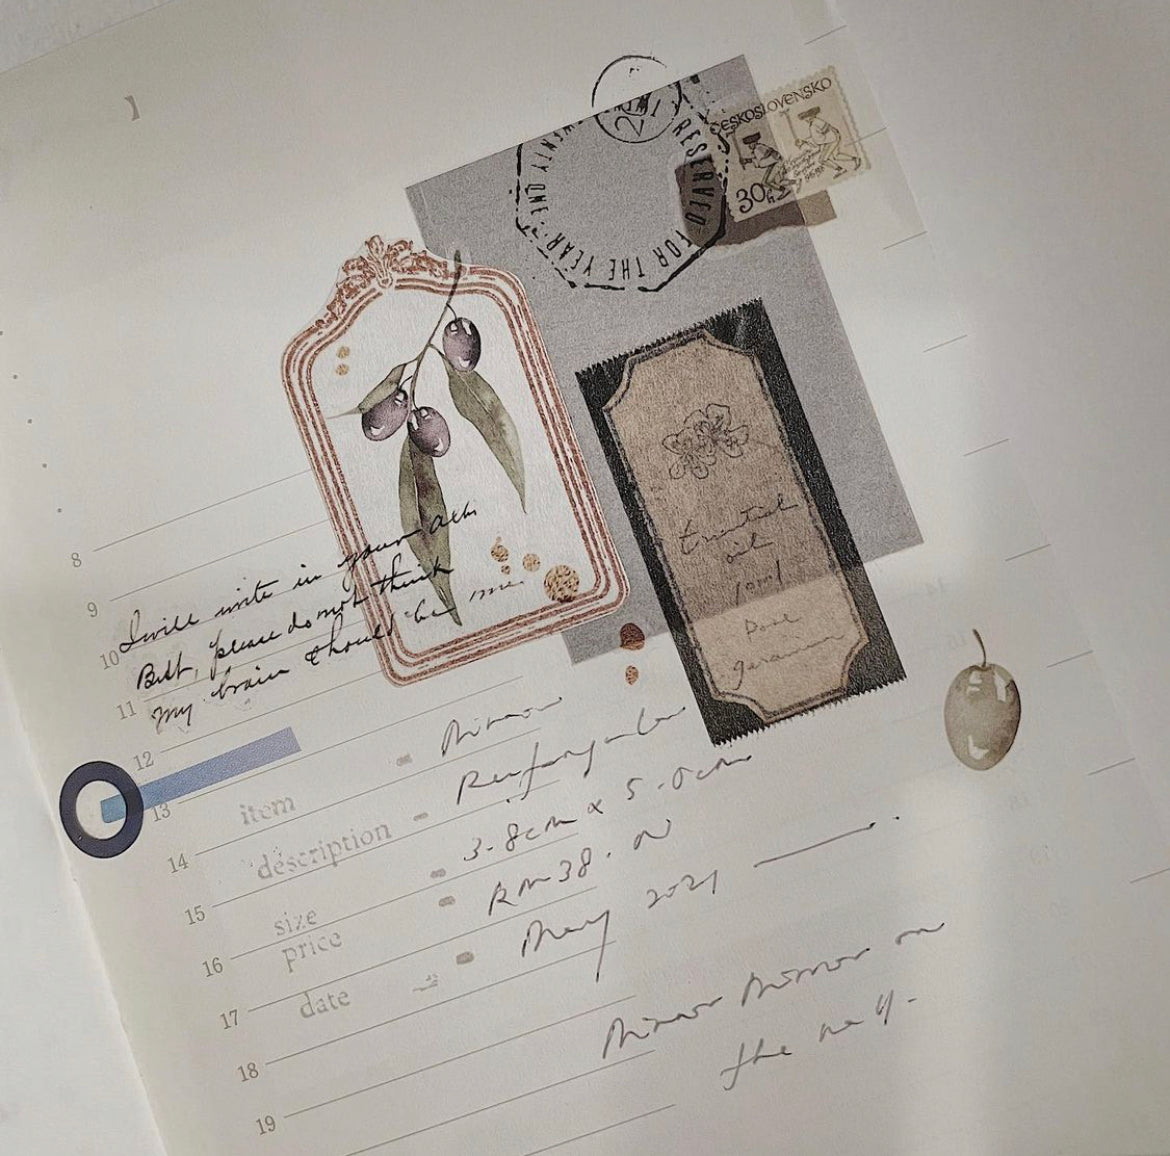 ČESKOSLOVENSKO
30h
RESERVED FOR THE YEAR TWENTY ONE
Essential
oil
10ml
geranium
I will write in your
But, please do not think
my brain should be
8
9
10
11
12
13
14
15
16
17
18
19
item - Mirror
description - Rectangular
size - 3.8cm x 5.0cm
price - RM38.00
date - May 2021
Mirror Mirror on
the wall.